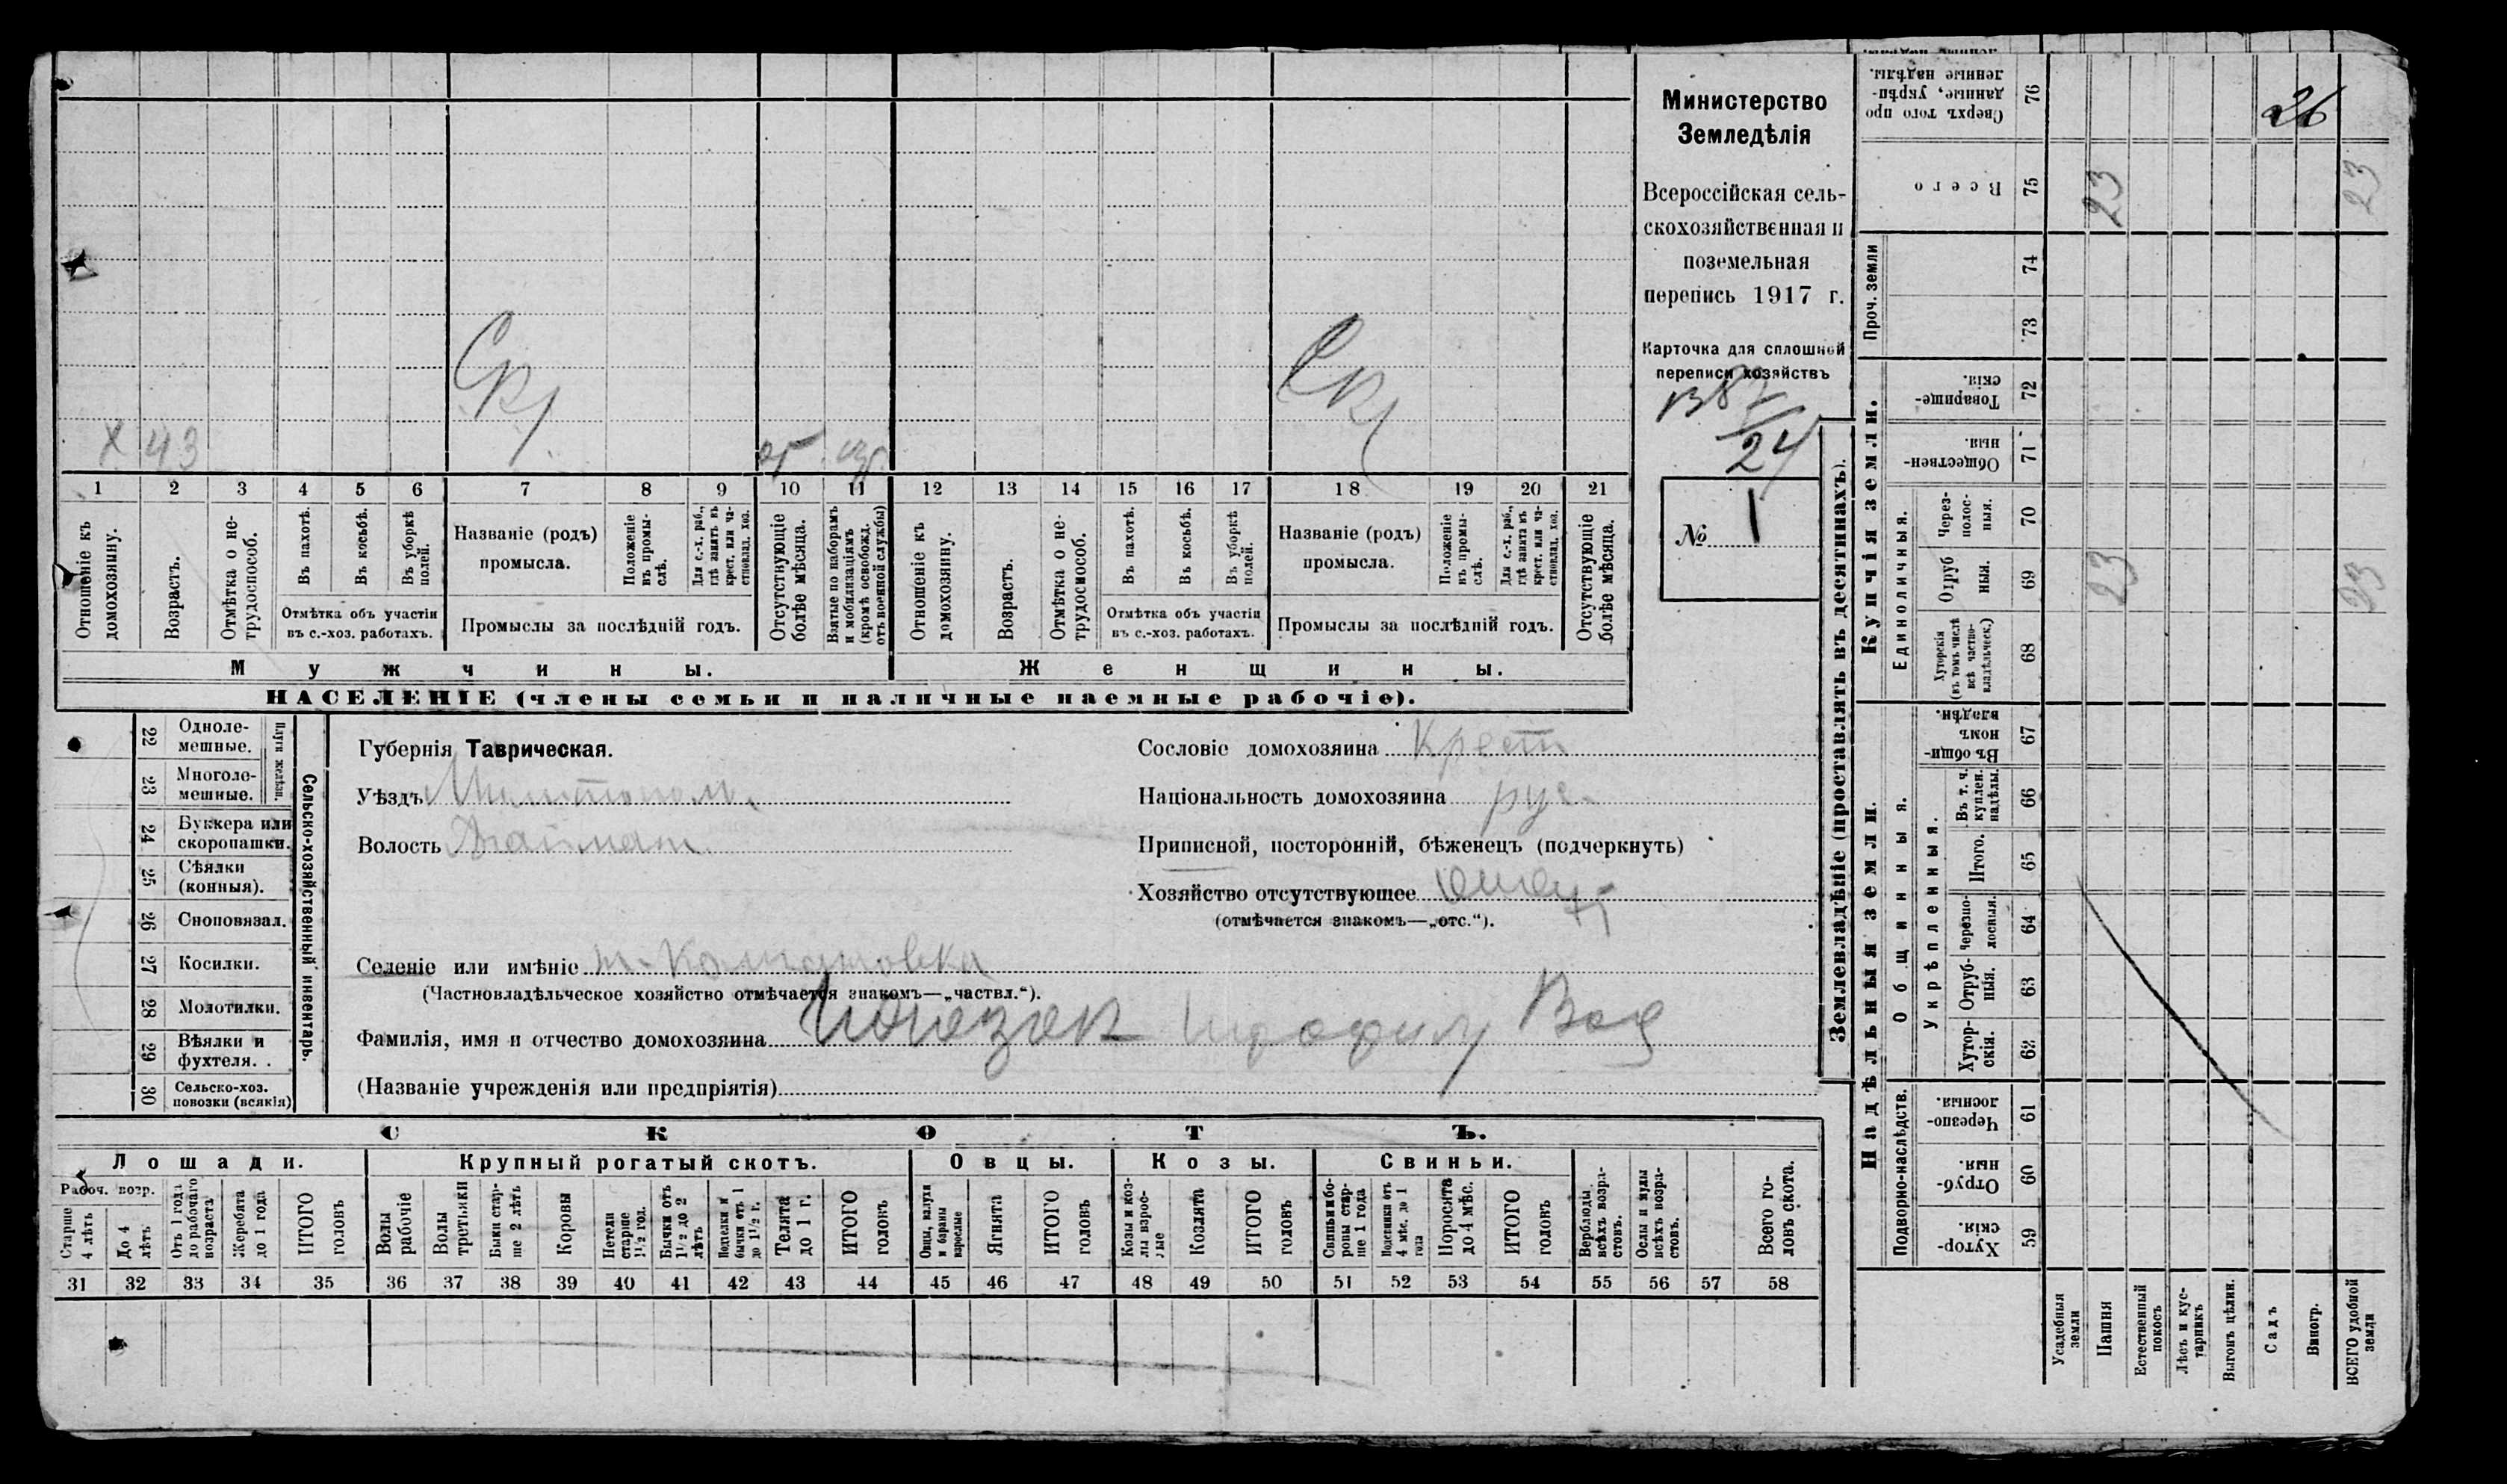 Министерство
Земледѣлія
Всероссійская сель-
скохозяйственная и
поземельная
перепись 1917 г.
Карточка для сплошной
переписи хозяйствъ
24
№ 1
х 43
1 2 3 4 5 6 7 8 9 10 11 12 13 14 15 16 17 18 19 20 21
Отношеніе къ домохозяину.
Возрастъ.
Отмѣтка о не-трудоспособ.
Въ пахотѣ.
Въ косьбѣ.
Въ уборкѣ полей.
Отмѣтка объ участіи
въ с.-хоз. работахъ.
Названіе (родъ)
промысла.
Положеніе въ промы-слѣ.
Для с.-х. раб., гдѣ занятъ въ крест. или ча-стновлад. хоз.
Промыслы за послѣдній годъ.
Отсутствующіе болѣе мѣсяца.
Взятые по наборамъ и мобилизаціямъ (кромѣ освобожд. отъ военной службы)
Отношеніе къ домохозяину.
Возрастъ.
Отмѣтка о не-трудоспособ.
Въ пахотѣ.
Въ косьбѣ.
Въ уборкѣ полей.
Отмѣтка объ участіи
въ с.-хоз. работахъ.
Названіе (родъ)
промысла.
Положеніе въ промы-слѣ.
Для с.-х. раб., гдѣ занята въ крест. или ча-стновлад. хоз.
Промыслы за послѣдній годъ.
Отсутствующіе болѣе мѣсяца.
Мужчины.
Женщины.
НАСЕЛЕНІЕ (члены семьи и наличные наемные рабочіе).
Сельско-хозяйственный инвентарь.
Плуги желѣзн.
22 Одноле-мешные.
23 Многоле-мешные.
24 Буккера или скоропашки.
25 Сѣялки (конныя).
26 Сноповязал.
27 Косилки.
28 Молотилки.
29 Вѣялки и фухтеля. .
30 Сельско-хоз. повозки (всякія)
Губернія Таврическая.
Уѣздъ
Волость
Селеніе или имѣніе
(Частновладѣльческое хозяйство отмѣчается знакомъ—„частвл.“).
Фамилія, имя и отчество домохозяина
(Названіе учрежденія или предпріятія)
Сословіе домохозяина Крест
Національность домохозяина рус.
Приписной, посторонній, бѣженецъ (подчеркнуть)
Хозяйство отсутствующее
(отмѣчается знакомъ—„отс.“).
СКОТЪ.
Лошади.
Крупный рогатый скотъ.
Овцы.
Козы.
Свиньи.
Рабоч. возр.
Старше 4 лѣтъ
До 4 лѣтъ
Отъ 1 года до рабочаго возраста
Жеребята до 1 года
ИТОГО головъ
Волы рабочіе
Волы третьяки
Быки стар-ше 2 лѣтъ
Коровы
Петели старше 1½ год.
Бычки отъ 1½ до 2 лѣтъ
Подтелки и бычки отъ 1 до 1½ г.
Телята до 1 г.
ИТОГО головъ
Овцы, валухи и бараны взрослые
Ягнята
ИТОГО головъ
Козы и коз-лы взрос-лые
Козлята
ИТОГО головъ
Свиньи и бо-ровы стар-ше 1 года
Подсвинки отъ 4 мѣс. до 1 года
Поросята до 4 мѣс.
ИТОГО головъ
Верблюды всѣхъ возра-стовъ.
Ослы и мулы всѣхъ возра-стовъ.
Всего го-ловъ скота.
31 32 33 34 35 36 37 38 39 40 41 42 43 44 45 46 47 48 49 50 51 52 53 54 55 56 57 58
Землевладѣніе (проставлять въ десятинахъ).
Надѣльныя земли.
Купчія земли.
Проч. земли
Подворно-наслѣдств.
Общинныя.
Укрѣпленныя.
Единоличныя.
Сверхъ того про данные, укрѣп-ленные надѣлы. 76
Всего 75
74
73
Товарище-скія. 72
Обществен-ныя. 71
Через-полос-ныя. 70
Отруб ныя. 69
Хуторскія (въ томъ числѣ всѣ частно-владѣльческ.) 68
Въ общи-номъ владѣн. 67
Въ т. ч. куплен. надѣлы. 66
Итого. 65
Черезпо-лосныя. 64
Отруб-ныя. 63
Хутор-скія. 62
Черезпо-лосныя. 61
Отруб-ныя. 60
Хутор-скія. 59
26
23
23
23
23
Усадебныя земли
Пашня
Естественный покосъ
Лѣсъ и кус-тарникъ
Выгонъ цѣлин.
Садъ
Виногр.
ВСЕГО удобной земли